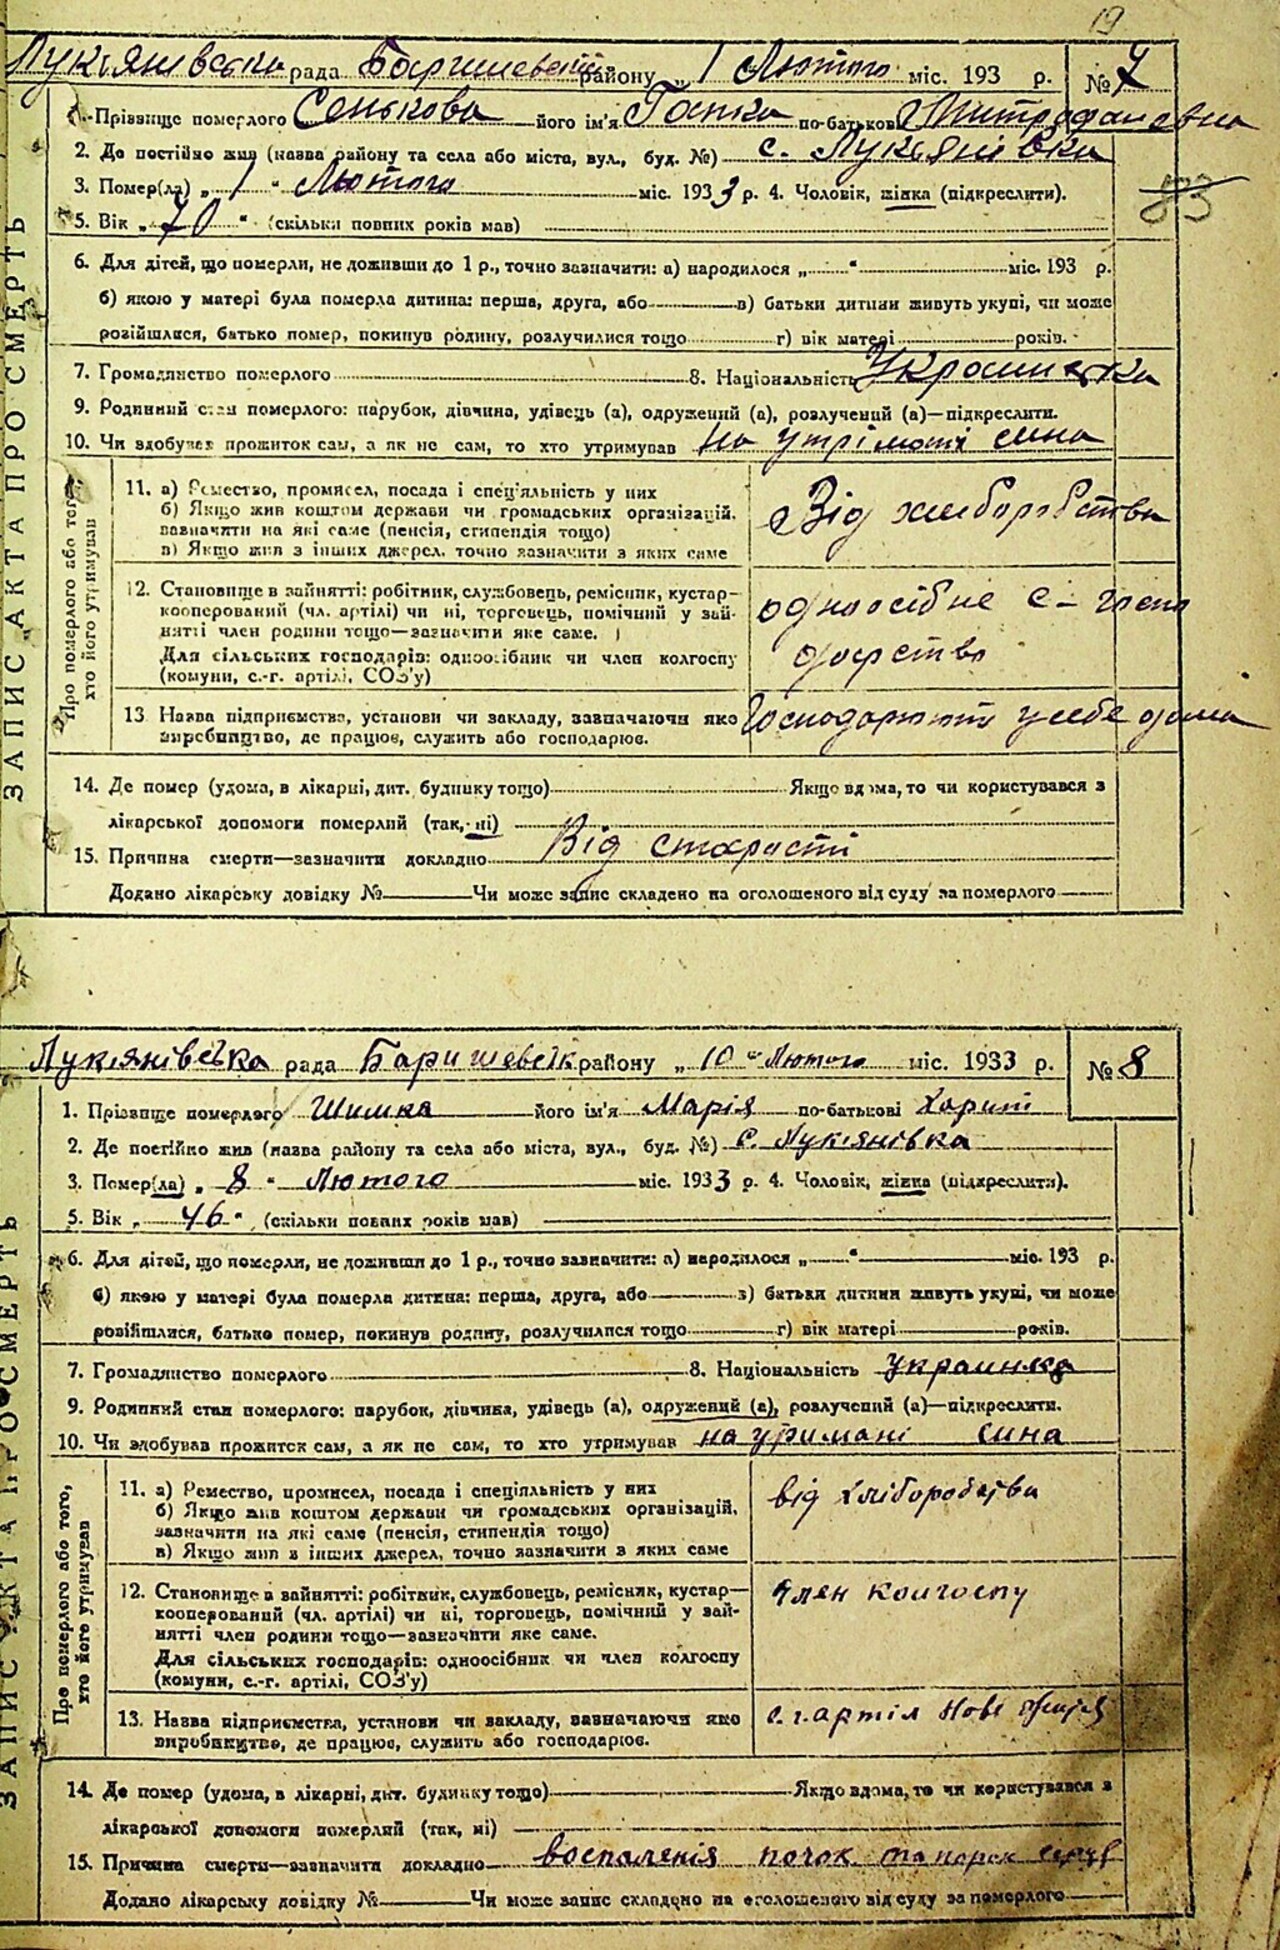 19
Лукянівська рада Баришевськ району „ 1 Лютого міс. 193 р. № 7
1. Прізвище померлого Сенькова його ім'я Гапка по-батькові Митрофановна
2. Де постійно жив (назва району та села або міста, вул., буд. №) с. Лукянівка
3. Помер(ла) „ 1 " Лютого міс. 1933 р. 4. Чоловік, жінка (підкреслити).
53
5. Вік „ 70 " (скільки повних років мав)
6. Для дітей, що померли, не доживши до 1 р., точно зазначити: а) народилося „ " міс. 193 р.
б) якою у матері була померла дитина: перша, друга, або в) батьки дитини живуть укупі, чи може
розійшлися, батько помер, покинув родину, розлучилися тощо г) вік матері років.
7. Громадянство померлого 8. Національність Украинка
9. Родинний стан померлого: парубок, дівчина, удівець (а), одружений (а), розлучений (а)—підкреслити.
10. Чи здобував прожиток сам, а як не сам, то хто утримував на утрімані сина
ЗАПИС АКТА ПРО СМЕРТЬ
Про померлого або того, хто його утримував
11. а) Ремество, промисел, посада і спец'яльність у них
б) Якщо жив коштом держави чи громадських організацій,
зазначити на які саме (пенсія, стипендія тощо)
в) Якщо жив з інших джерел, точно зазначити з яких саме
Від хліборобства
12. Становище в зайнятті: робітник, службовець, ремісник, кустар—
кооперований (чл. артілі) чи ні, торговець, помічний у зай-
нятті член родини тощо—зазначити яке саме.
Для сільських господарів: одноосібник чи член колгоспу
(комуни, с.-г. артілі, СОЗ'у)
одноосібне с-госпо
дарство
13 Назва підприємства, установи чи закладу, зазначаючи яке
виробництво, де працює, служить або господарює.
Господарюють у себе дома
14. Де помер (удома, в лікарні, дит. будинку тощо) Якщо вдома, то чи користувався з
лікарської допомоги померлий (так, ні)
15. Причина смерти—зазначити докладно Від старості
Додано лікарську довідку № Чи може запис складено на оголошеного від суду за померлого
Лукянівська рада Баришевськ району „ 10 " Лютого міс. 1933 р. № 8
1. Прізвище померлого Шимка його ім'я Марія по-батькові Харит
2. Де постійно жив (назва району та села або міста, вул., буд. №) с. Лукянівка
3. Помер(ла) „ 8 " Лютого міс. 1933 р. 4. Чоловік, жінка (підкреслити).
5. Вік „ 46 " (скільки повних років мав)
6. Для дітей, що померли, не доживши до 1 р., точно зазначити: а) народилося „ " міс. 193 р.
б) якою у матері була померла дитина: перша, друга, або в) батьки дитини живуть укупі, чи може
розійшлися, батько помер, покинув родину, розлучилися тощо г) вік матері років.
7. Громадянство померлого 8. Національність Украинка
9. Родинний стан померлого: парубок, дівчина, удівець (а), одружений (а), розлучений (а)—підкреслити.
10. Чи здобував прожиток сам, а як не сам, то хто утримував на уримані сина
ЗАПИС АКТА ПРО СМЕРТЬ
Про померлого або того, хто його утримував
11. а) Ремество, промисел, посада і спеціяльність у них
б) Якщо жив коштом держави чи громадських організацій,
зазначити на які саме (пенсія, стипендія тощо)
в) Якщо жив з інших джерел, точно зазначити з яких саме
від хліборобства
12. Становище в зайнятті: робітник, службовець, ремісник, кустар—
кооперований (чл. артілі) чи ні, торговець, помічний у зай-
нятті член родини тощо—зазначити яке саме.
Для сільських господарів: одноосібник чи член колгоспу
(комуни, с.-г. артілі, СОЗ'у)
член колгоспу
13. Назва підприємства, установи чи закладу, зазначаючи яке
виробництво, де працює, служить або господарює.
с.г. артіл Нове життя
14. Де помер (удома, в лікарні, дит. будинку тощо) Якщо вдома, то чи користувався з
лікарської допомоги померлий (так, ні)
15. Причина смерти—зазначити докладно воспаленія почок та порок
Додано лікарську довідку № Чи може запис складено на оголошеного від суду за померлого